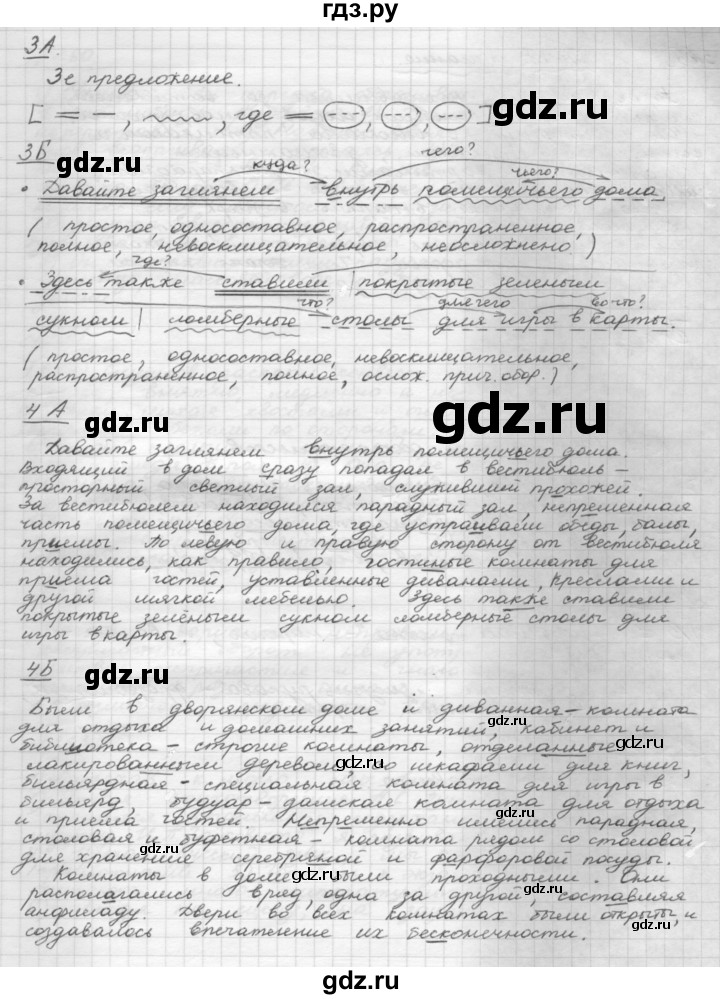 гдз.ру
3А.
3е предложение.
[ = – , ﹏ , где = ○, ○, ○ ]
gdz.ru
gdz.ru
3Б
куда? чего? чьего?
• Давайте заглянем внутрь помещичьего дома.
( простое, односоставное, распространенное,
полное, невосклицательное, неосложнено )
где?
• Здесь также ставили | покрытые зеленым
что? для чего во что?
сукном | ломберные столы для игры в карты.
( простое, односоставное, невосклицательное,
распространенное, полное, ослож. прич. обор. )
gdz.ru
gdz.ru
4 А
Давайте заглянем внутрь помещичьего дома.
Входящий в дом сразу попадал в вестибюль –
просторный светлый зал, служивший прохожей.
gdz.ru
За вестибюлем находился парадный зал, непременная
часть помещичьего дома, где устраивали обеды, балы,
приемы. По левую и правую сторону от вестибюля
находились, как правило, гостиные комнаты для
приёма гостей, уставленные диванами, креслами и
другой мягкой мебелью. Здесь также ставили
покрытые зелёным сукном ломберные столы для
игры в карты.
gdz.ru
gdz.ru
4Б
Были в дворянском доме и диванная – комната
для отдыха и домашних занятий, кабинет и
gdz.ru
библиотека – строгие комнаты, отделанные
лакированным деревом, со шкафами для книг,
gdz.ru
бильярдная – специальная комната для игры в
бильярд, будуар – дамская комната для отдыха
и приема гостей. Непременно имелись парадная,
столовая и буфетная – комната рядом со столовой
gdz.ru
для хранения серебряной и фарфоровой посуды.
Комнаты в доме были проходными. Они
gdz.ru
располагались в ряд, одна за другой, составляя
анфиладу. Двери во всех комнатах были открыты, и
gdz.ru
создавалось впечатление их бесконечности.
gdz.ru